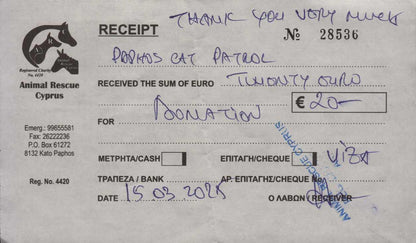 THANK YOU VERY MUCH
RECEIPT
№ 28536
Registered Charity
No. 4420
PAPHOS CAT PATROL
Animal Rescue
Cyprus
RECEIVED THE SUM OF EURO TWONTY EURO
€ 20-
FOR DONATION
Emerg.: 99655581
Fax: 26222236
P.O. Box 61272
8132 Kato Paphos
ΜΕΤΡΗΤΑ/CASH
ΕΠΙΤΑΓΗ/CHEQUE VIZA
ΤΡΑΠΕΖΑ / BANK
ΑΡ. ΕΠΙΤΑΓΗΣ/CHEQUE No.
Reg. No. 4420
DATE 15 03 2025
Ο ΛΑΒΩΝ / RECEIVER
ANIMAL RESCUE CYPRUS